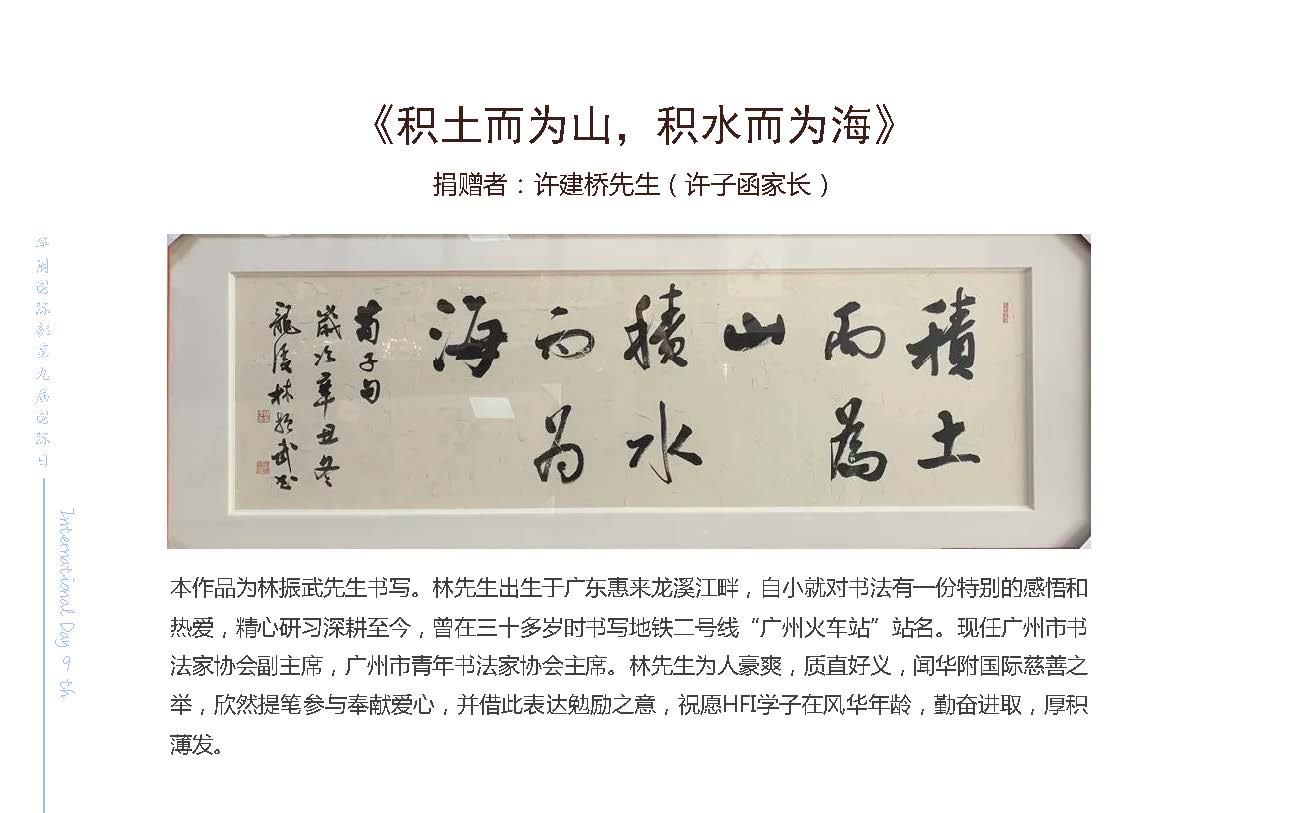 《积土而为山，积水而为海》
捐赠者：许建桥先生（许子函家长）
積土
而為
山
積水
而为
海
荀子句
歲次辛丑冬
龍溪林振武书
本作品为林振武先生书写。林先生出生于广东惠来龙溪江畔，自小就对书法有一份特别的感悟和
热爱，精心研习深耕至今，曾在三十多岁时书写地铁二号线“广州火车站”站名。现任广州市书
法家协会副主席，广州市青年书法家协会主席。林先生为人豪爽，质直好义，闻华附国际慈善之
举，欣然提笔参与奉献爱心，并借此表达勉励之意，祝愿HFI学子在风华年龄，勤奋进取，厚积
薄发。
华附国际部第九届国际日
International Day 9 th